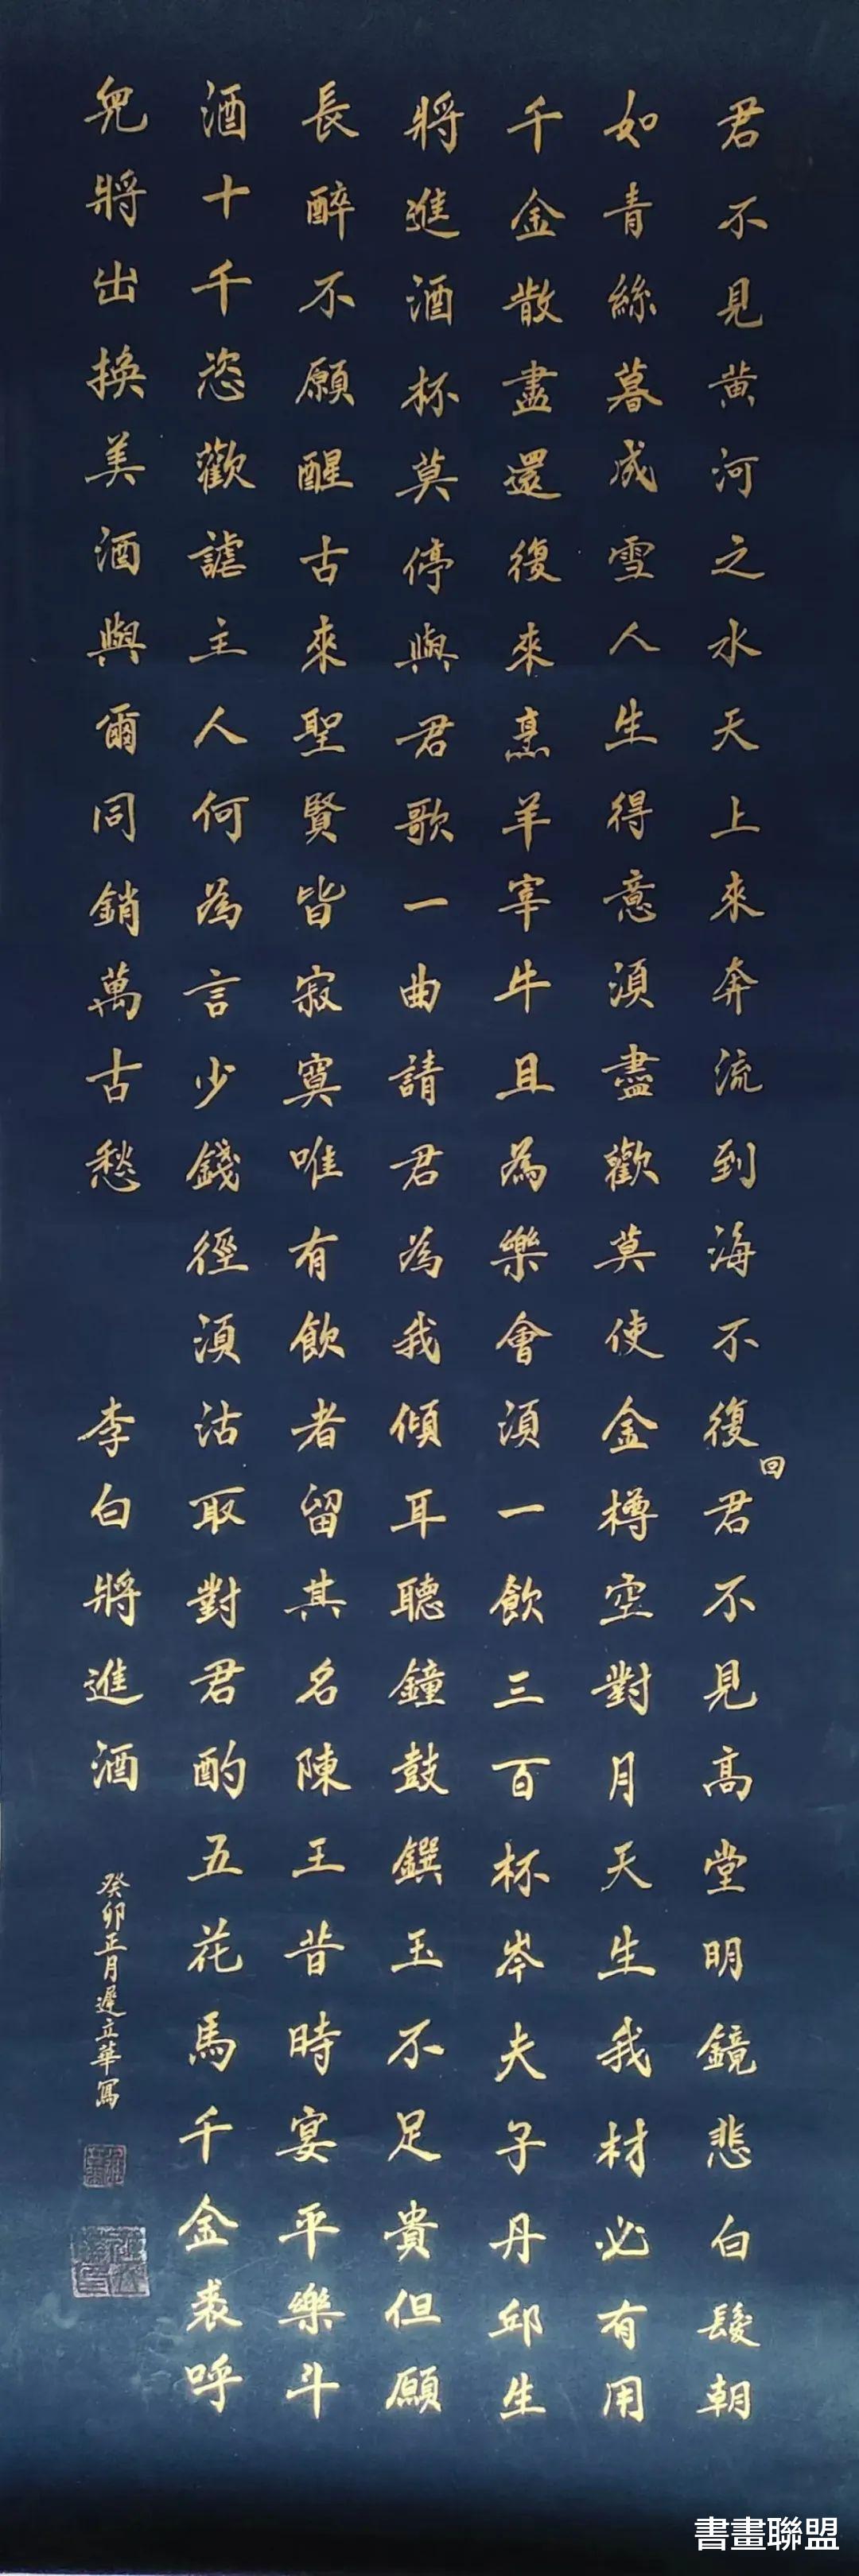 君不見黃河之水天上來奔流到海不復回君不見高堂明鏡悲白髮朝
如青絲暮成雪人生得意須盡歡莫使金樽空對月天生我材必有用
千金散盡還復來烹羊宰牛且為樂會須一飲三百杯岑夫子丹邱生
將進酒杯莫停與君歌一曲請君為我傾耳聽鐘鼓饌玉不足貴但願
長醉不願醒古來聖賢皆寂寞唯有飲者留其名陳王昔時宴平樂斗
酒十千恣歡謔主人何為言少錢徑須沽取對君酌五花馬千金裘呼
兒將出換美酒與爾同銷萬古愁 李白將進酒
癸卯正月遲立華寫
書畫聯盟